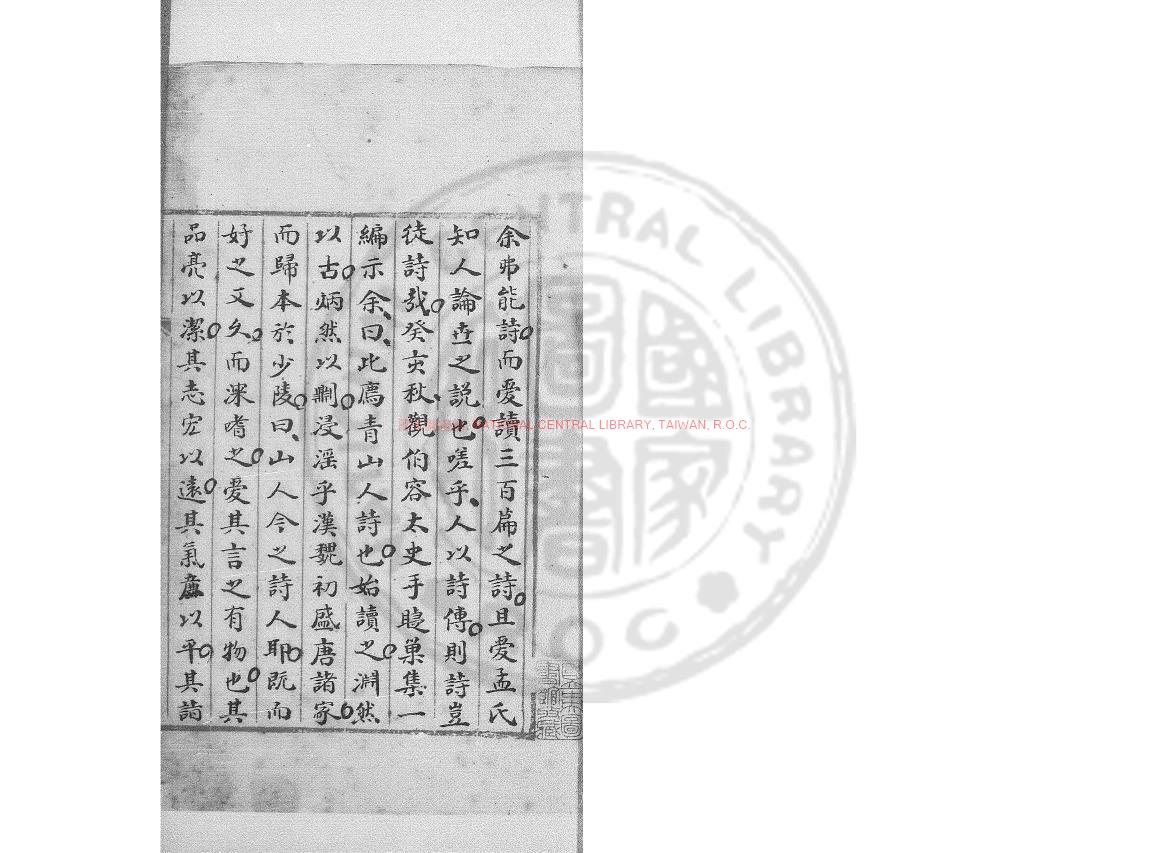 余弗能詩而愛讀三百篇之詩且愛孟氏
知人論世之説也嗟乎人以詩傳則詩豈
徒詩哉癸亥秋觀伯容太史手睫巢集一
編示余曰此廌青山人詩也始讀之淵然
以古炳然以剛浸淫乎漢魏初盛唐諸家
而歸本於少陵曰山人今之詩人耶既而
好之又久而深嗜之愛其言之有物也其
品亮以潔其志宏以遠其氣廉以平其詣
NATIONAL CENTRAL LIBRARY, TAIWAN, R.O.C.